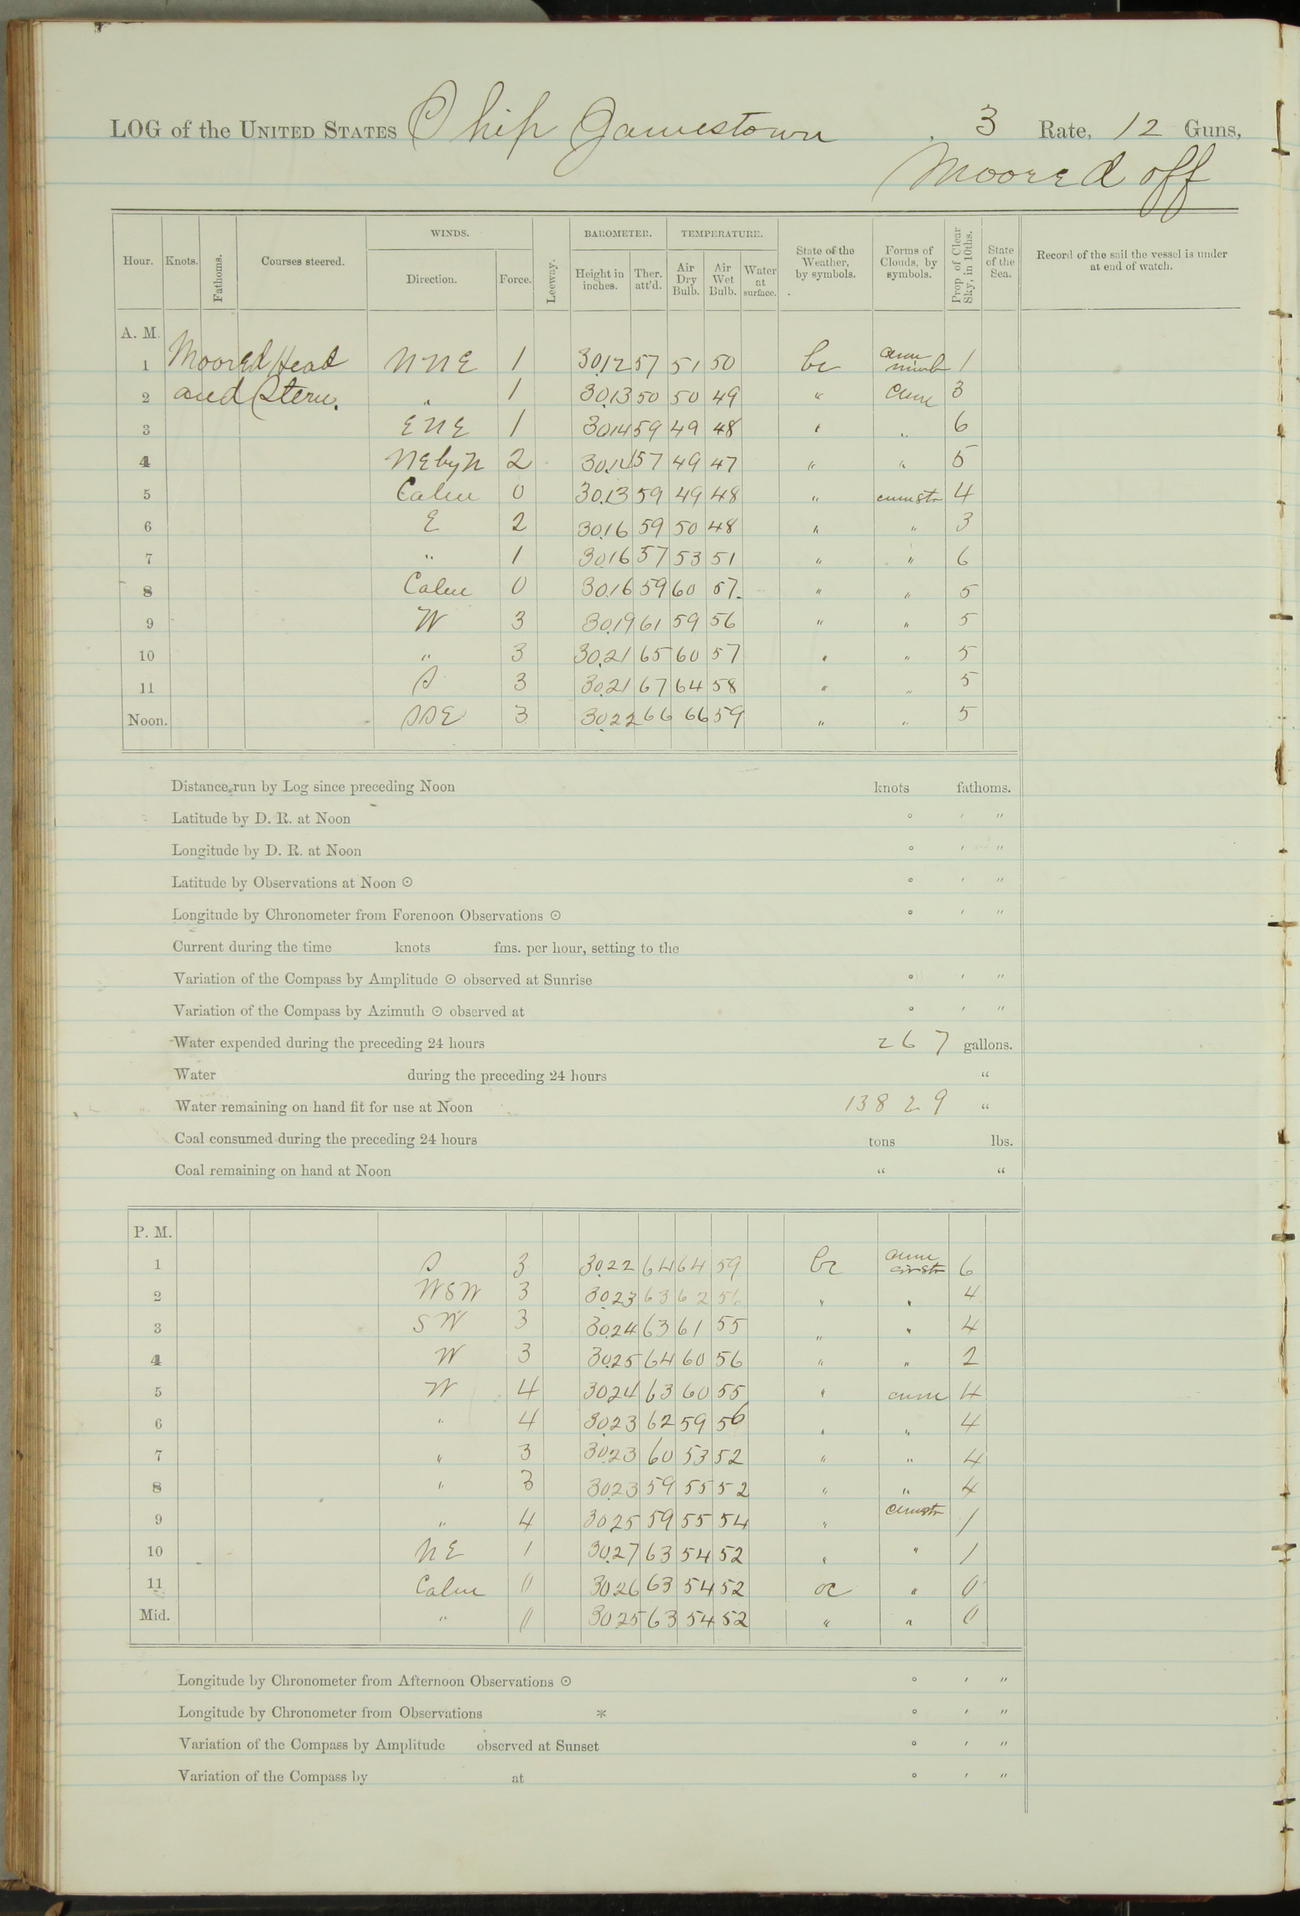 LOG of the UNITED STATES Ship Jamestown, 3 Rate, 12 Guns,
Moored off
WINDS. BAROMETER. TEMPERATURE.
Hour. Knots. Fathoms. Courses steered. Direction. Force. Leeway. Height in inches. Ther. att'd. Air Dry Bulb. Air Wet Bulb. Water at surface. State of the Weather, by symbols. Forms of Clouds, by symbols. Prop. of Clear Sky, in 10ths. State of the Sea. Record of the sail the vessel is under at end of watch.
A. M.
1 Moored Head NNE 1 30.12 57 51 50 bc cum nimb 1
2 and Stern. " 1 30.13 50 50 49 " Cum 3
3 ENE 1 30.14 59 49 48 " " 6
4 NEbyN 2 30.14 57 49 47 " " 5
5 Calm 0 30.13 59 49 48 " cumstr 4
6 E 2 30.16 59 50 48 " " 3
7 " 1 30.16 57 53 51 " " 6
8 Calm 0 30.16 59 60 57. " " 5
9 W 3 30.19 61 59 56 " " 5
10 " 3 30.21 65 60 57 " " 5
11 S 3 30.21 67 64 58 " " 5
Noon. SSE 3 30.22 66 66 59 " " 5
Distance run by Log since preceding Noon knots fathoms.
Latitude by D. R. at Noon ° ' "
Longitude by D. R. at Noon ° ' "
Latitude by Observations at Noon ☉ ° ' "
Longitude by Chronometer from Forenoon Observations ☉ ° ' "
Current during the time knots fms. per hour, setting to the
Variation of the Compass by Amplitude ☉ observed at Sunrise ° ' "
Variation of the Compass by Azimuth ☉ observed at ° ' "
Water expended during the preceding 24 hours 267 gallons.
Water during the preceding 24 hours "
Water remaining on hand fit for use at Noon 13829 "
Coal consumed during the preceding 24 hours tons lbs.
Coal remaining on hand at Noon " "
P. M.
1 S 3 30.22 64 64 59 bc cum cirstr 6
2 WSW 3 30.23 63 62 56 " " 4
3 SW 3 30.24 63 61 55 " " 4
4 W 3 30.25 64 60 56 " " 2
5 W 4 30.24 63 60 55 " cum 4
6 " 4 30.23 62 59 56 " " 4
7 " 3 30.23 60 53 52 " " 4
8 " 3 30.23 59 55 52 " " 4
9 " 4 30.25 59 55 54 " cumstr 1
10 NE 1 30.27 63 54 52 " " 1
11 Calm 0 30.26 63 54 52 oc " 0
Mid. " 0 30.25 63 54 52 " " 0
Longitude by Chronometer from Afternoon Observations ☉ ° ' "
Longitude by Chronometer from Observations * ° ' "
Variation of the Compass by Amplitude observed at Sunset ° ' "
Variation of the Compass by at ° ' "